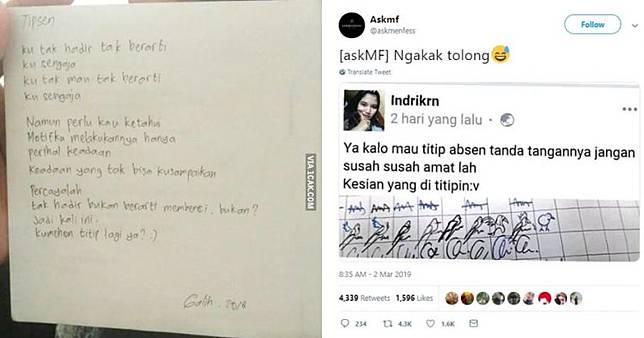 Tipsen
ku tak hadir tak berarti
ku sengaja
ku tak mau tak berarti
ku sengaja
Namun perlu kau ketahui
Motifku melakukannya hanya
perihal keadaan
Keadaan yang tak bisa kusampaikan
Percayalah
tak hadir bukan berarti membenci, bukan?
Jadi kali ini,
kumohon titip lagi ya? :)
Galih, 2018
VIA 1CAK.COM
Askmf
@askmenfess
Follow
[askMF] Ngakak tolong😅
Translate Tweet
Indrikrn
2 hari yang lalu
Ya kalo mau titip absen tanda tangannya jangan
susah susah amat lah
Kesian yang di titipin:v
8:35 AM - 2 Mar 2019
4,339 Retweets 1,596 Likes
234 4.3K 1.6K